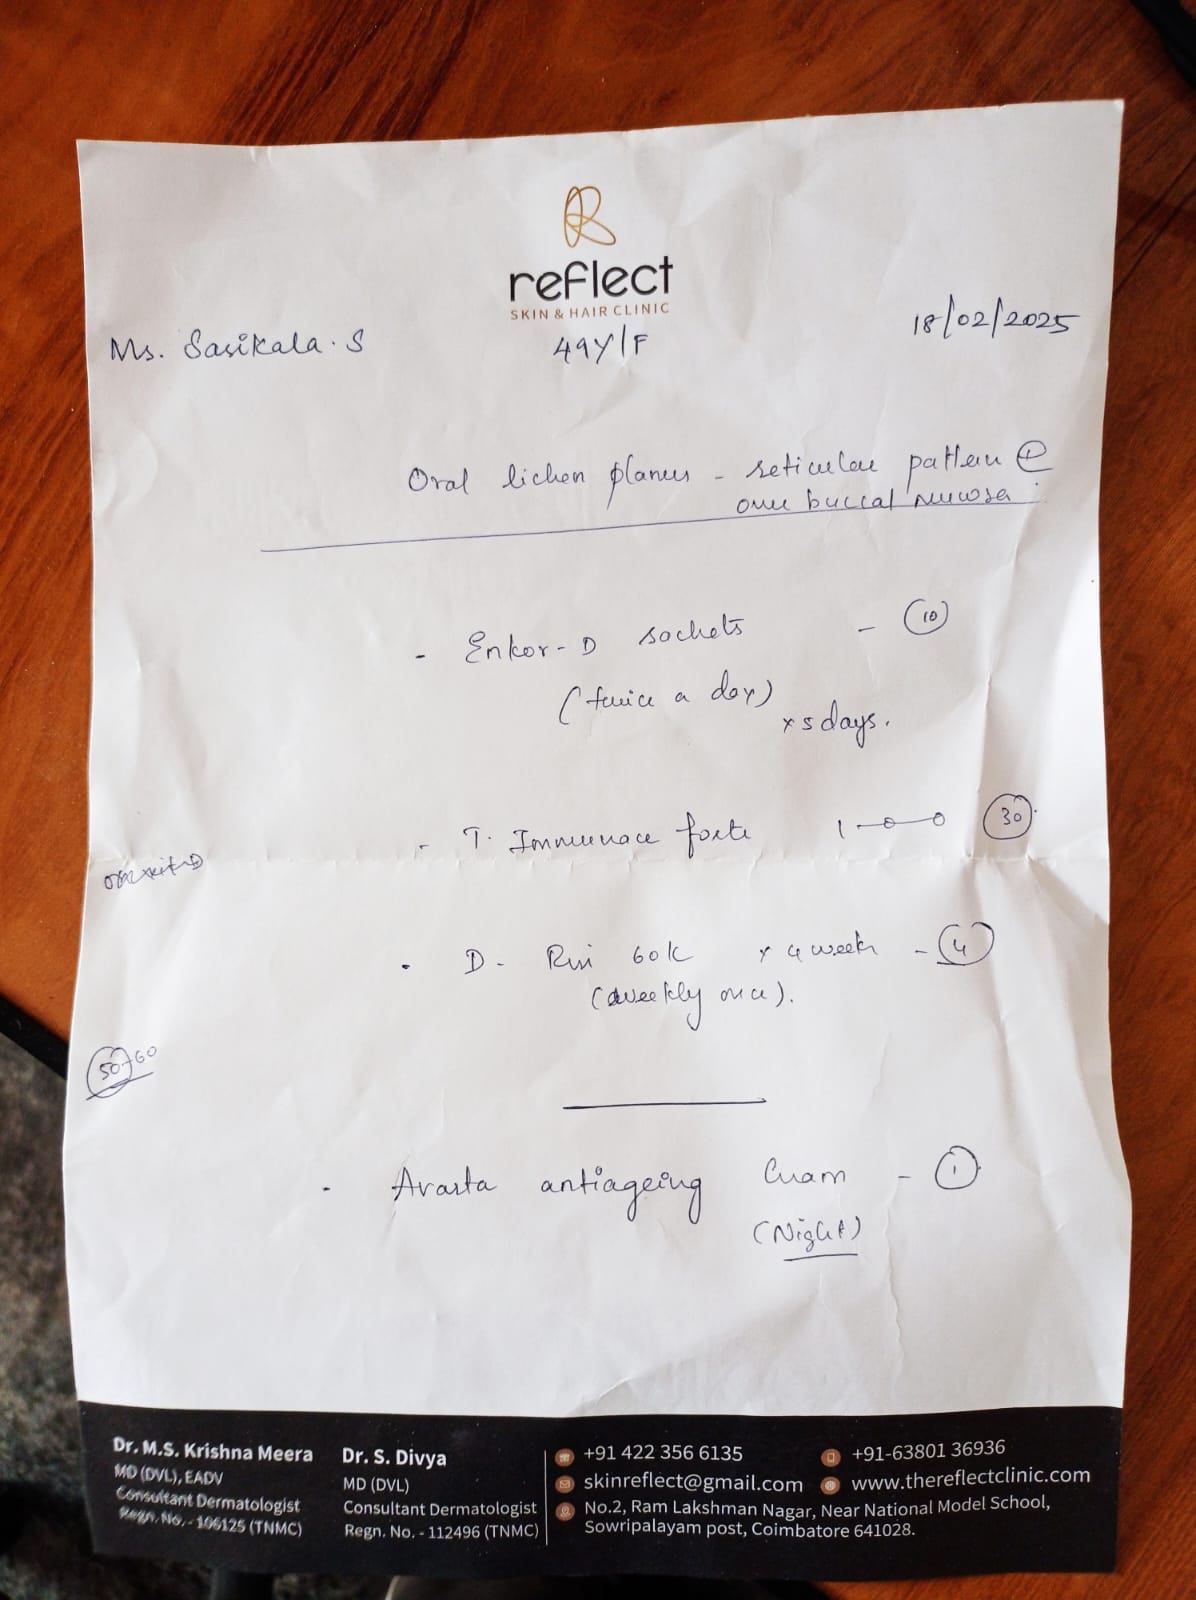 reflect
SKIN & HAIR CLINIC
Ms. Sasikala. S
49Y/F
18/02/2025
Oral lichen planus - reticular pattern ⊕
over buccal mucosa.
- Enkor-D sachets - 10
(twice a day)
x 5 days.
- T. Immunace forte 1-0-0 30
. D- Rise 60k x 4 week - 4
(weekly once).
50-60
. Avarta antiageing Cream - 1
(Night)
Dr. M.S. Krishna Meera
MD (DVL), EADV
Consultant Dermatologist
Regn. No. - 106125 (TNMC)
Dr. S. Divya
MD (DVL)
Consultant Dermatologist
Regn. No. - 112496 (TNMC)
+91 422 356 6135
+91-63801 36936
skinreflect@gmail.com
www.thereflectclinic.com
No.2, Ram Lakshman Nagar, Near National Model School,
Sowripalayam post, Coimbatore 641028.